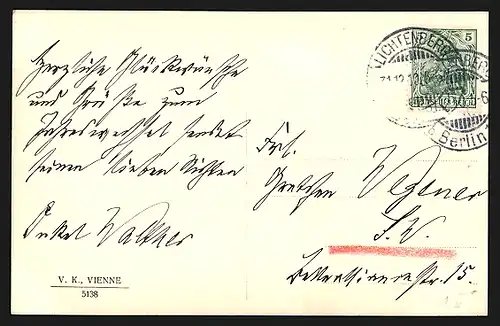 Herzliche Glückwünsche
und Grüße zum
Jahreswechsel sendet
seinen lieben Nichten
Onkel Walther
V. K., VIENNE
5138
LICHTENBERG
31.12.
Berlin
5
Frl.
Gretchen Wegener
S.W.
str. 15.